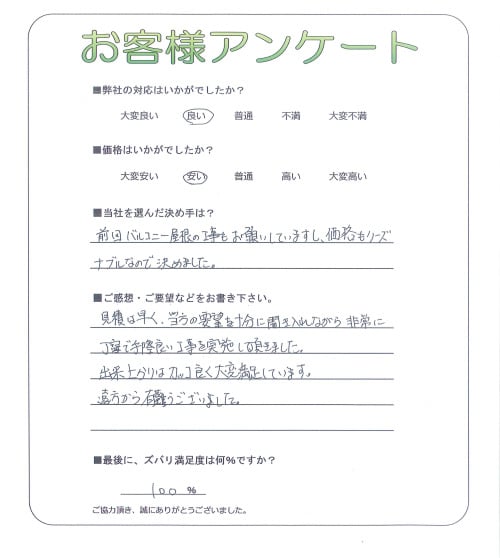 お客様アンケート
■弊社の対応はいかがでしたか？
大変良い 良い 普通 不満 大変不満
■価格はいかがでしたか？
大変安い 安い 普通 高い 大変高い
■当社を選んだ決め手は？
前回バルコニー屋根の工事もお願いしていますし、価格もリーズ
ナブルなので決めました。
■ご感想・ご要望などをお書き下さい。
見積は早く、当方の要望を十分に聞き入れながら非常に
丁寧で手際良い工事を実施して頂きました。
出来上がりはカッコ良く大変満足しています。
遠方から有難うございました。
■最後に、ズバリ満足度は何%ですか？
100 %
ご協力頂き、誠にありがとうございました。